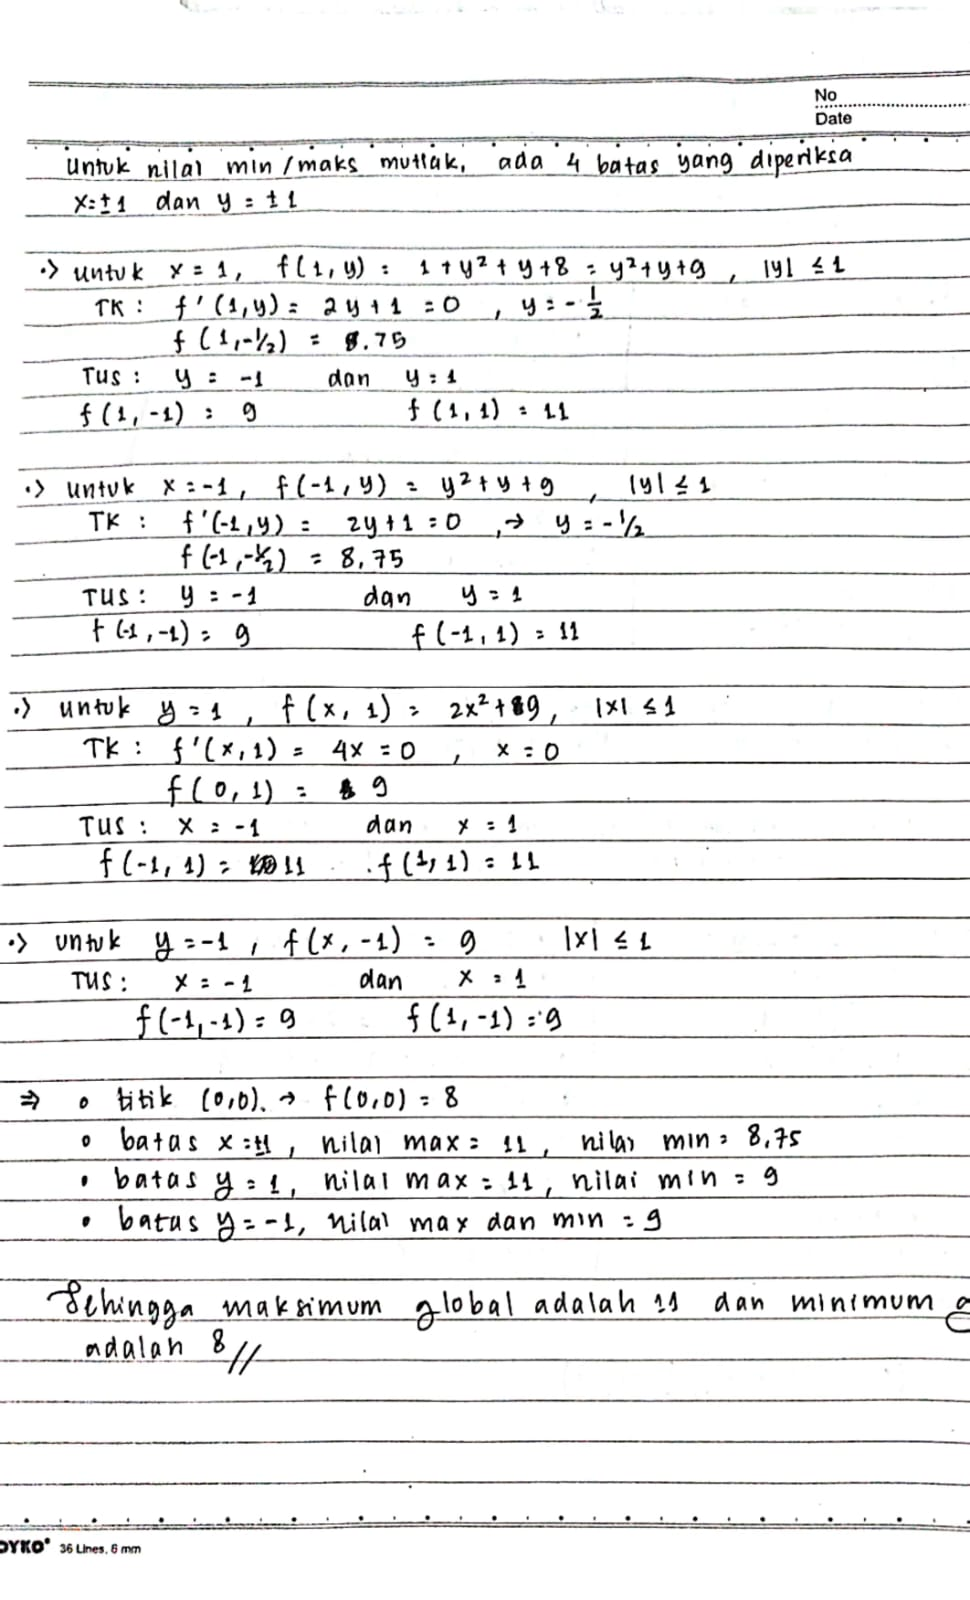 No
Date
Untuk nilai min/maks mutlak, ada 4 batas yang diperiksa
x=±1 dan y = ±1
•> untuk x = 1, f(1,y) = 1 + y² + y + 8 = y²+y+9 , |y| ≤ 1
TK : f'(1,y) = 2y + 1 = 0 , y = -1/2
f(1,-1/2) = 8.75
TUS : y = -1 dan y = 1
f(1,-1) = 9 f(1,1) = 11
•> untuk x = -1, f(-1,y) = y²+y+9 , |y| ≤ 1
TK : f'(-1,y) = 2y+1 = 0 , → y = -1/2
f(-1,-1/2) = 8,75
TUS : y = -1 dan y = 1
f(-1,-1) = 9 f(-1,1) = 11
•> untuk y = 1, f(x,1) = 2x²+9, |x| ≤ 1
TK : f'(x,1) = 4x = 0 , x = 0
f(0,1) = 9
TUS : x = -1 dan x = 1
f(-1,1) = 11 f(1,1) = 11
•> untuk y = -1, f(x,-1) = 9 |x| ≤ 1
TUS : x = -1 dan x = 1
f(-1,-1) = 9 f(1,-1) = 9
⇒ • titik (0,0). → f(0,0) = 8
• batas x=±1, nilai max = 11, nilai min = 8,75
• batas y = 1, nilai max = 11, nilai min = 9
• batas y = -1, nilai max dan min = 9
Sehingga maksimum global adalah 11 dan minimum g
adalah 8 //
OYKO 36 Lines, 6 mm